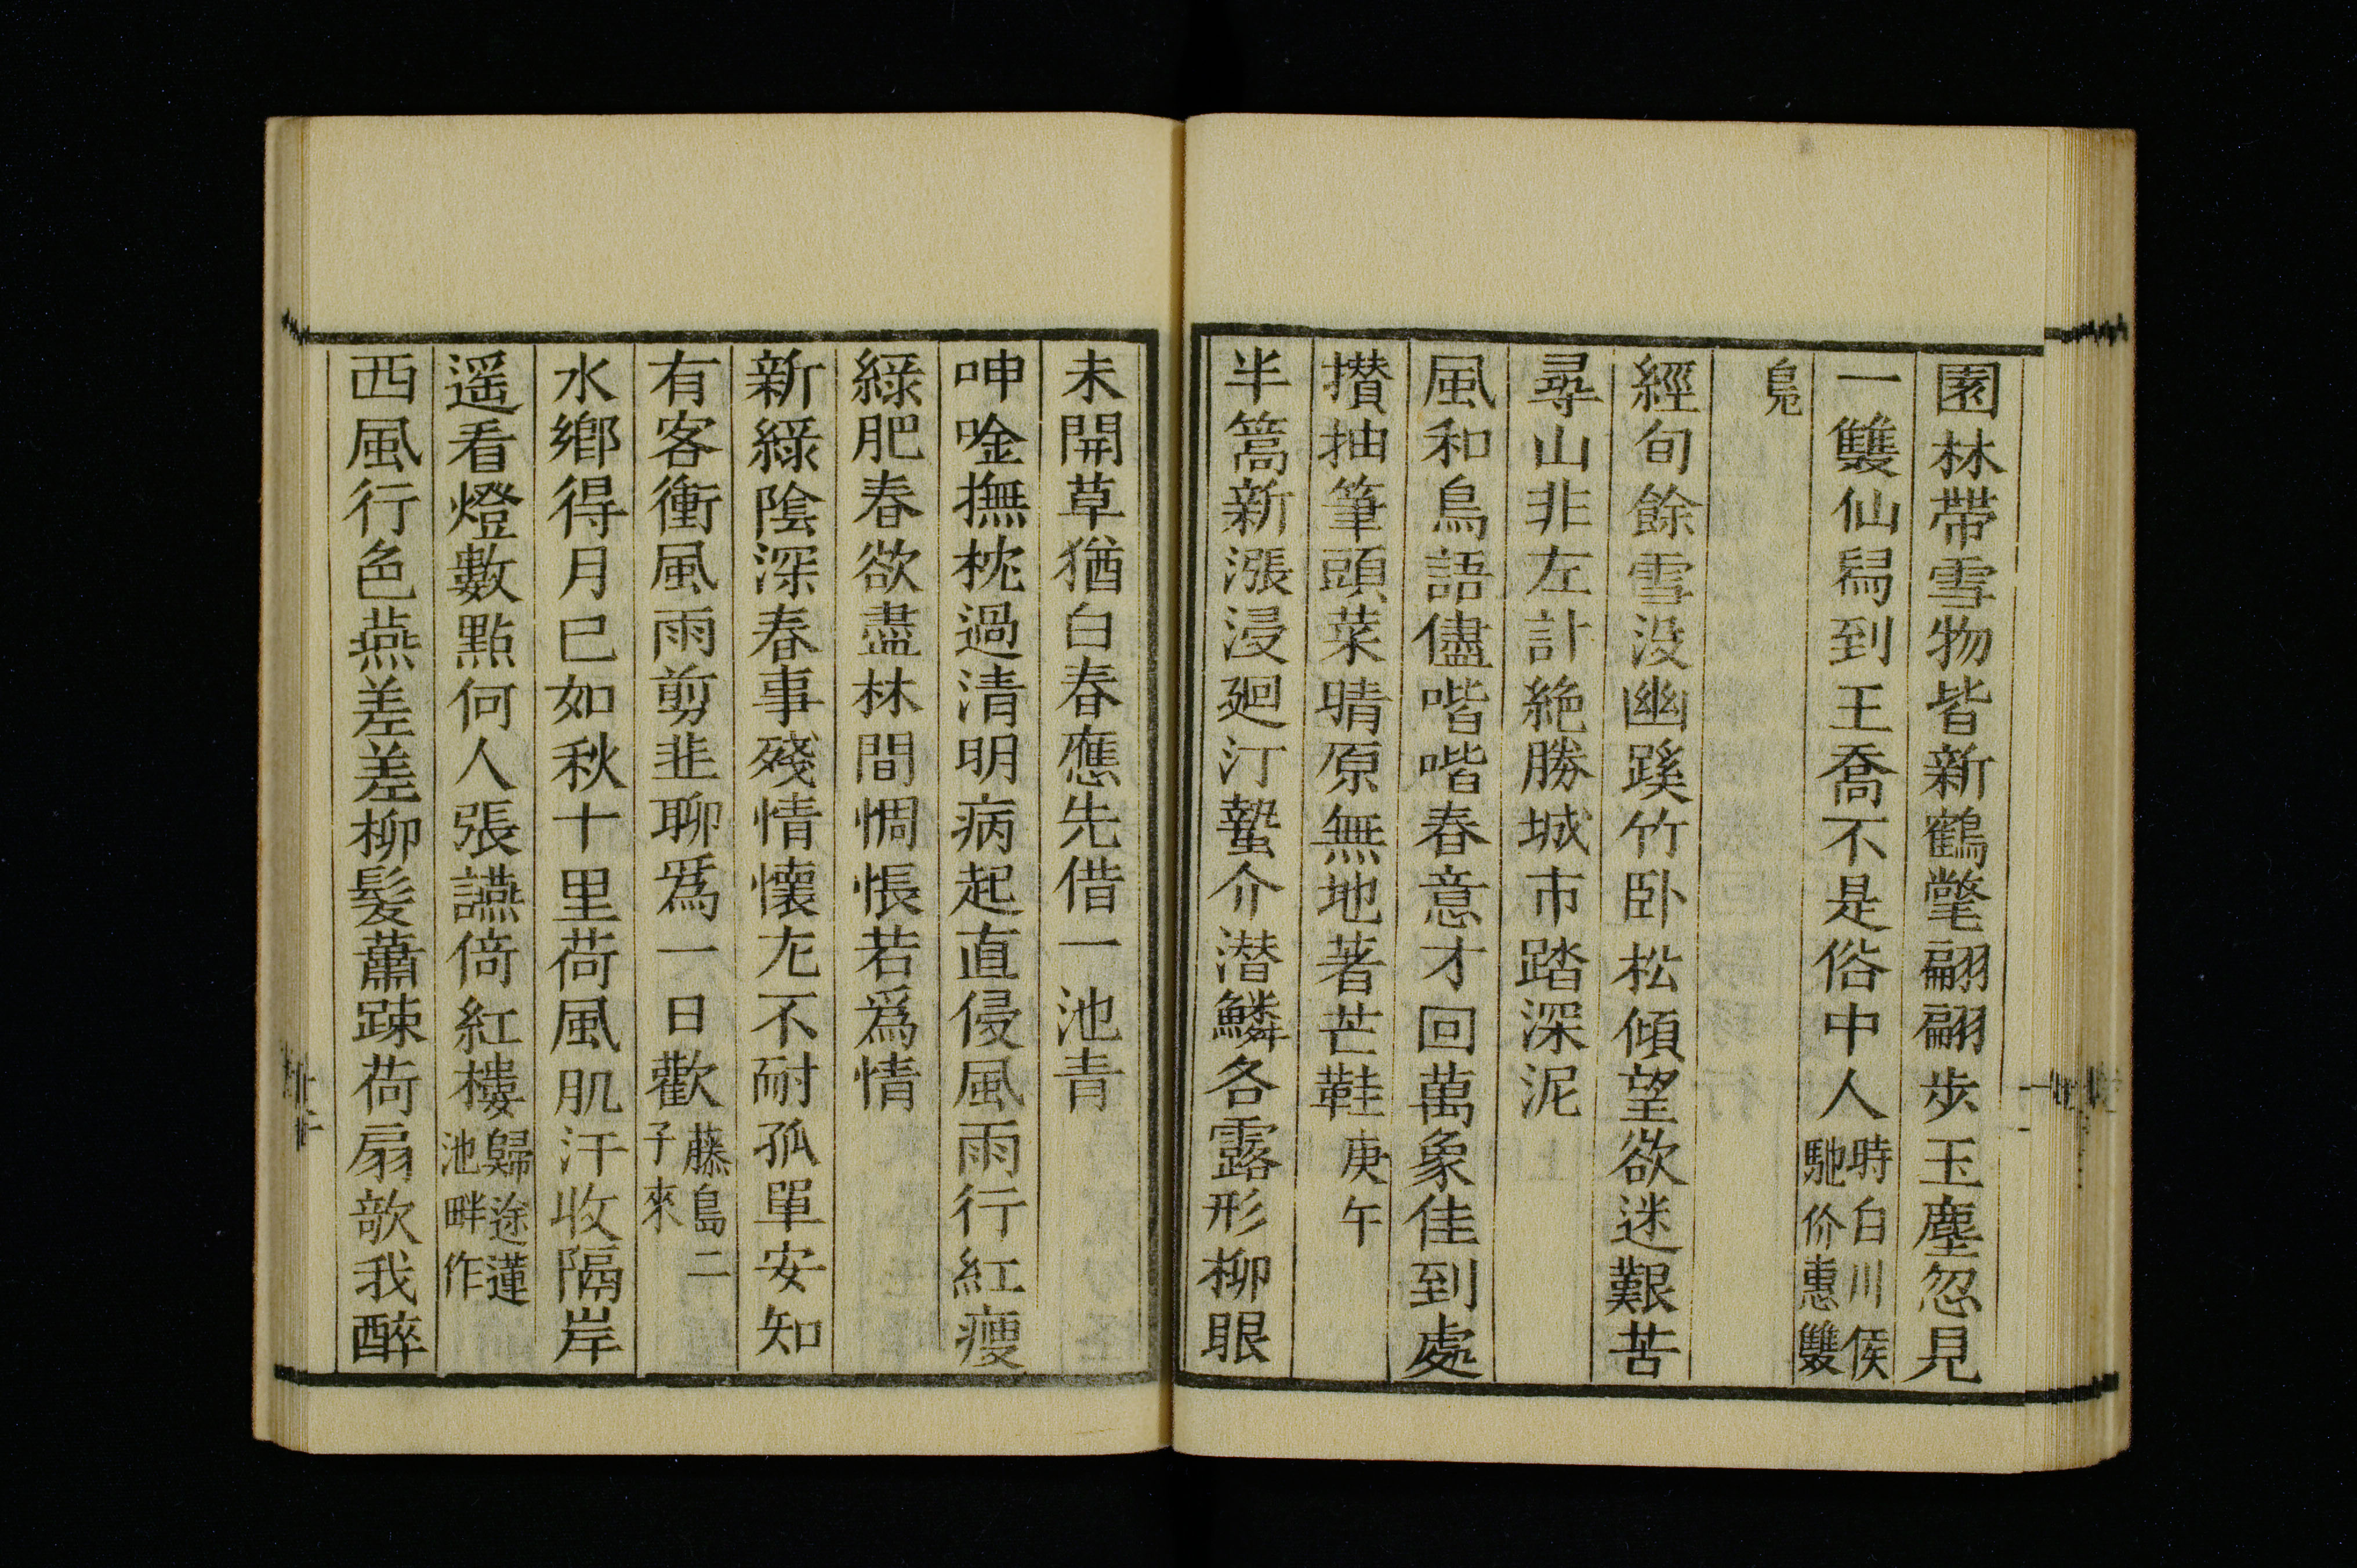 園林帶雪物皆新鶴氅翩翩步玉塵忽見
一雙仙舄到王喬不是俗中人時白川侯馳价惠雙
鳧
經旬餘雪没幽蹊竹卧松傾望欲迷艱苦
尋山非左計絶勝城市踏深泥
風和鳥語儘喈喈春意才回萬象佳到處
攢抽筆頭菜晴原無地著芒鞋庚午
半篙新漲浸廻汀蟄介潜鱗各露形柳眼
未開草猶白春應先借一池青
呻唫撫枕過清明病起直侵風雨行紅瘦
綠肥春欲盡林間惆悵若爲情
新綠陰深春事殘情懷尢不耐孤單安知
有客衝風雨剪韭聊爲一日歡藤島二子來
水鄉得月已如秋十里荷風肌汗收隔岸
遥看燈數點何人張讌倚紅樓歸途蓮池畔作
西風行色燕差差柳髮蕭踈荷扇欹我醉